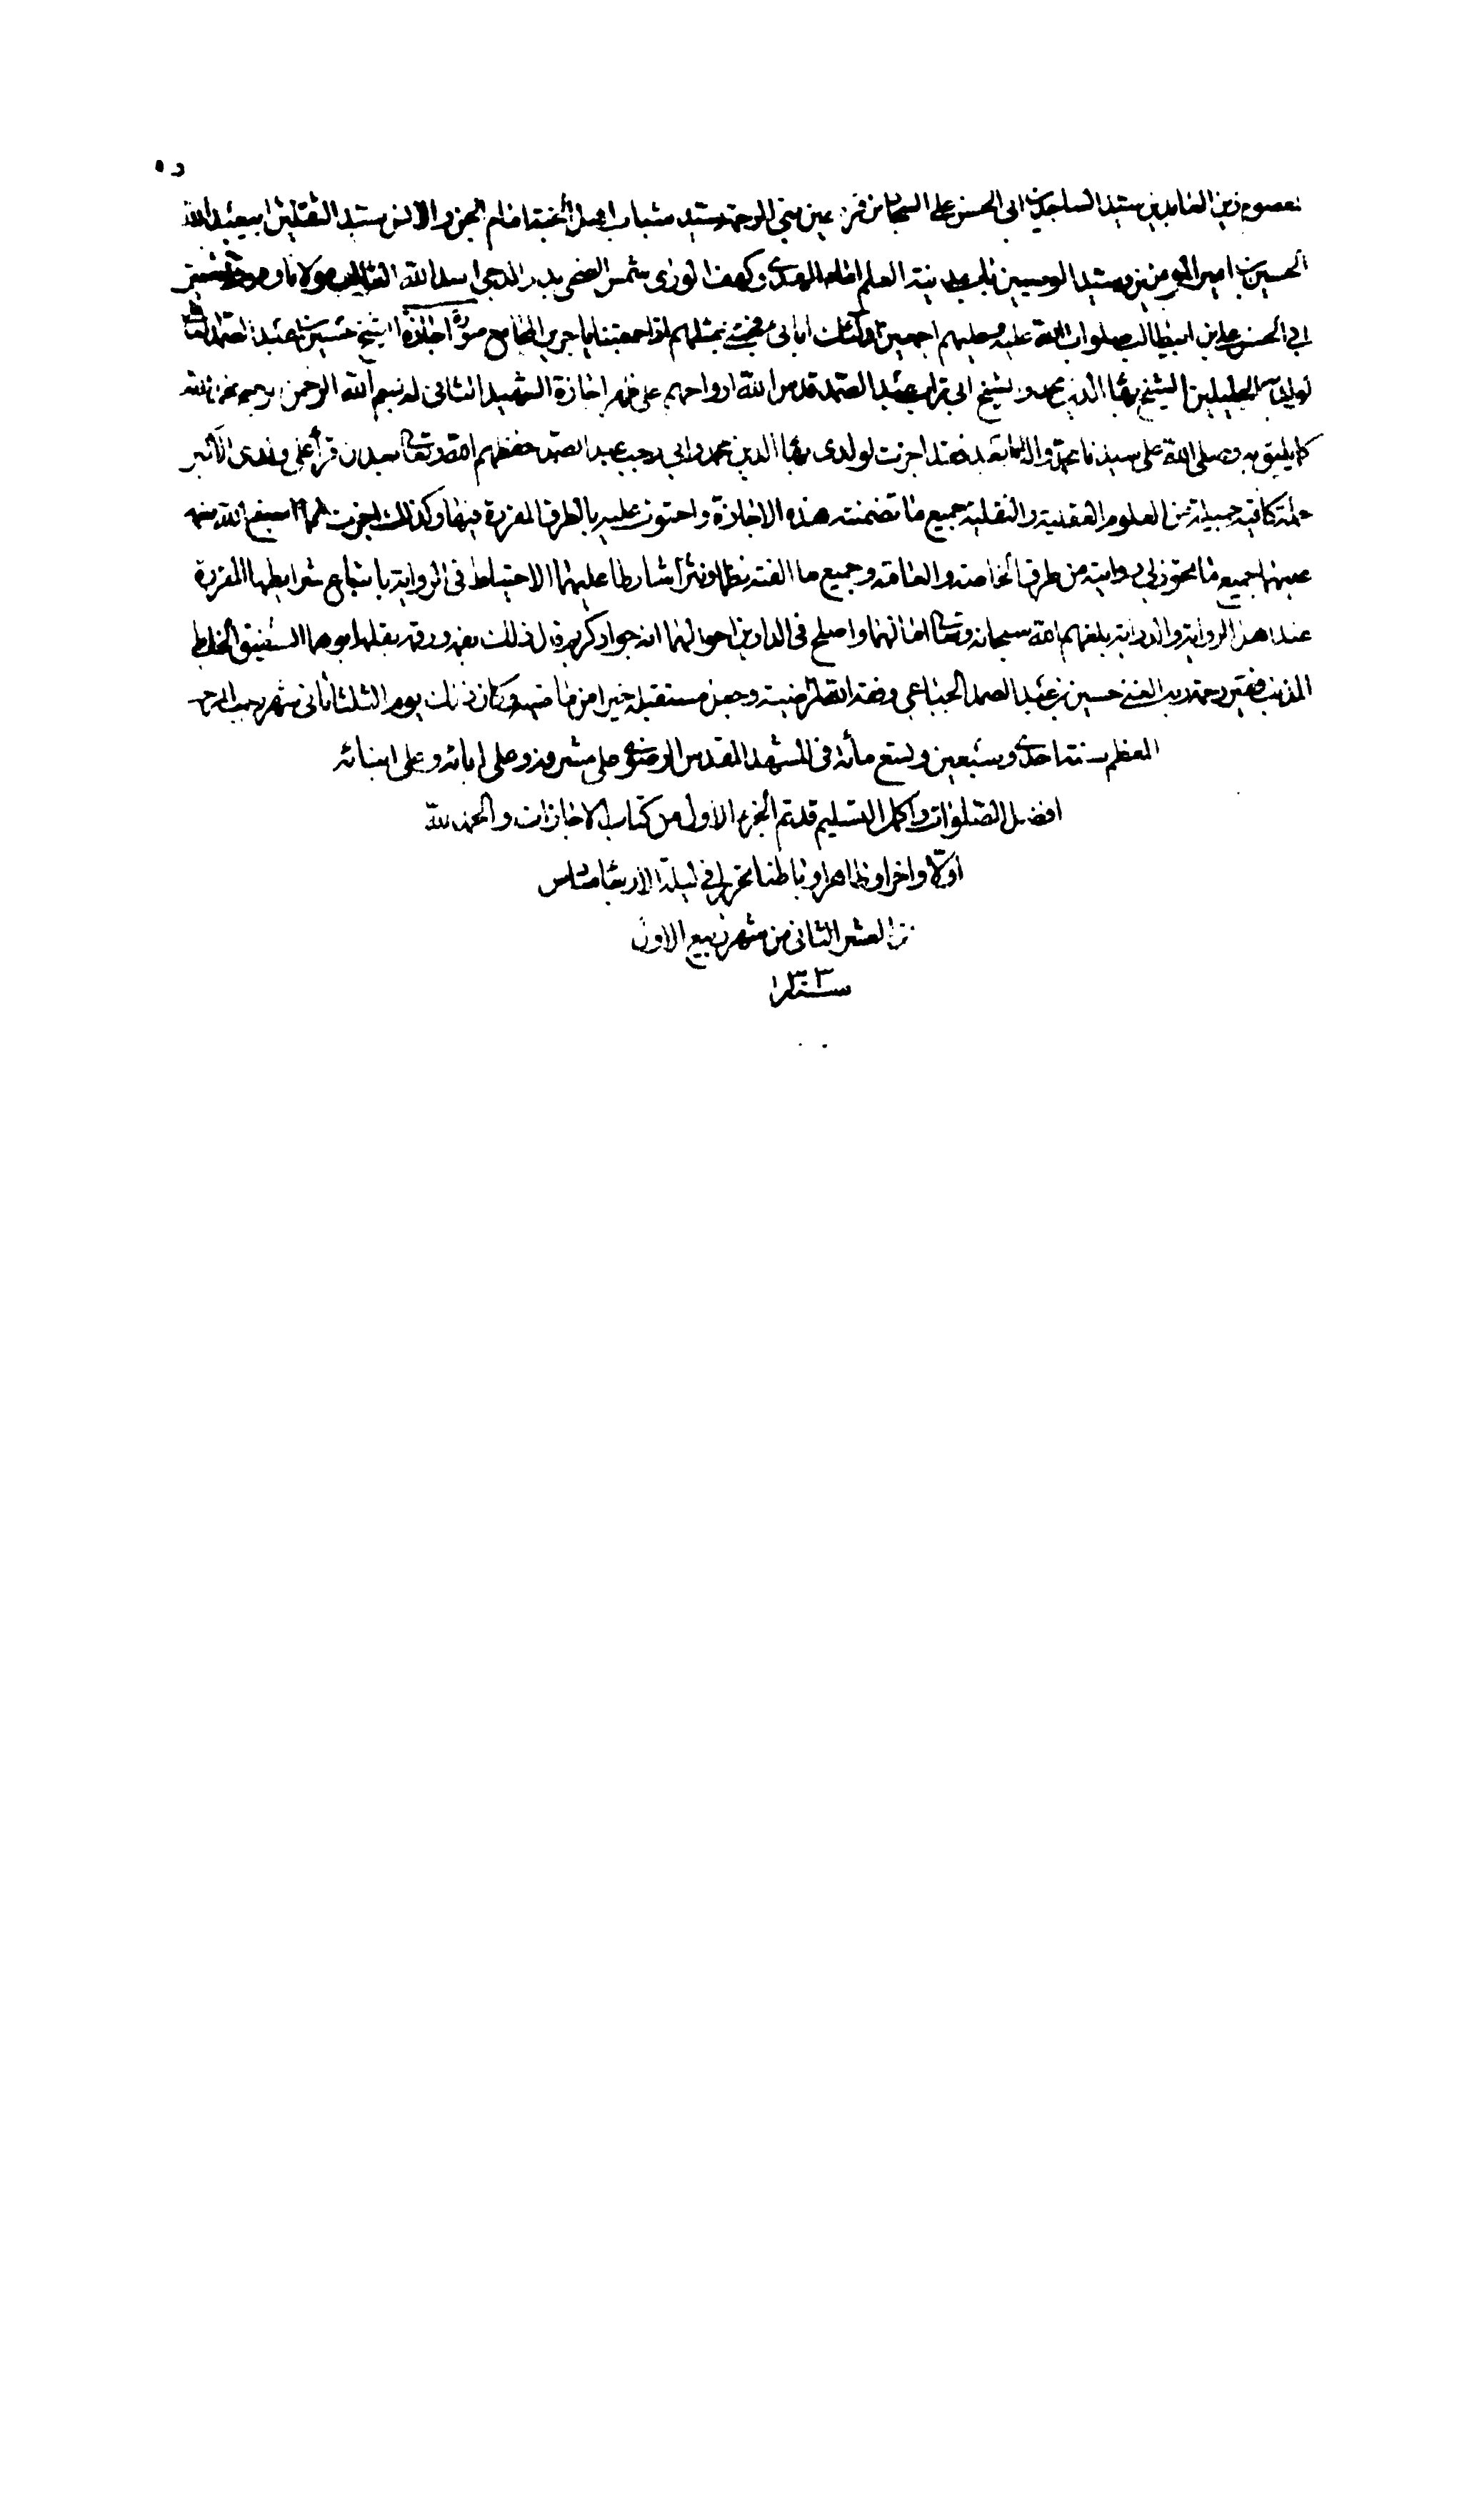 المعصوم زين العابدين سيد الساجدين ابي الحسن علي السجاد بن قرة عين نبي الرحمة وسيد شباب اهل الجنة امام الجن والانس سيد الثقلين ابيعبد الله
الحسين بن امير المؤمنين وسيد الوصيين باب مدينة العلم امام الهدى وكهف الورى شمس الضحى بدر الدجى اسد الله الغالب مولانا و
ابي الحسن علي بن ابيطالب صلوات الله عليه وعليهم اجمعين اولئك ابائي فجئني بمثلهم اذا جمعتنا يا جرير المجامع صورة اجازة الشيخ حسين بن عبد الصمد
لولديه الجليلين الشيخ بهاء الدين محمد والشيخ ابي تراب عبد الصمد قدس الله ارواحهم على ظهر اجازة الشهيد الثاني له بسم الله الرحمن الرحيم نحمد الله
كما يليق به وصلى الله على سيدنا محمد واله اما بعد فقد اجزت لولدي بهاء الدين محمد وابي تراب عبد الصمد حفظهم الله وتعالى بعد ان قرأ علي ولدي الاكبر
جملة كافية جميلة من العلوم العقلية والنقلية جميع ما تضمنته هذه الاجازة واحتوت عليه بالطرق المقررة فيها وكذلك اجزت لهما اسبغ الله نعمه
عليهما جميع ما يجوز لي روايته من طرق الخاصة والعامة وجميع ما الفته نظما ونثرا شارطا عليهما الاحتياط في الرواية باتباع شرايطها المقررة
عند اهل الرواية والدراية بلغهم الله سبحانه وتعالى امالهما واصلح في الدارين احوالهما انه جواد كريم قال ذلك بفمه ورقمه بقلمه ابوهما الشفيق الخاطئ
المذنب فقير رحمة ربه الغني حسين بن عبد الصمد الجباعي وفقه الله لمرضيه وجعل مستقبله خيرا من ماضيه وكان ذلك يوم الثلثا ثاني شهر رجب المرجب
المعظم سنة احدى وسبعين وتسع مأة في المشهد المقدس الرضوي على مشرفه وعلى ابائه وعلى ابنائه
افضل الصلوات واكمل التسليم قد تم الجزء الاول من كتاب الاجازات والحمد لله
اولا واخرا وظاهرا وباطنا تحريرا في ليلة الاربعا سادس
من العشر الثاني من شهر ربيع الاول